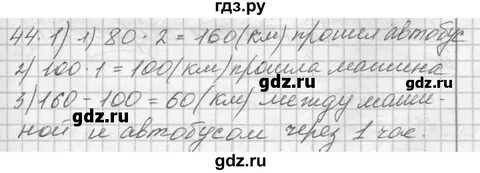 гдз.ру
44. 1) 1) 80 · 2 = 160 (км) прошел автобус
gdz.ru
2) 100 · 1 = 100 (км) прошла машина
3) 160 - 100 = 60 (км) между маши-
ной и автобусом через 1 час.
gdz.ru gdz.ru